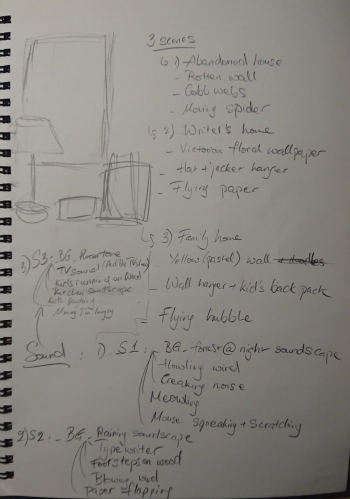 3 scenes
↳ 1) Abandoned house
- Rotten wall
- Cobb webs
- Moving spider
↳ 2) Writer's home
- Victorian floral wallpaper
- Hat + jacker hanger
- Flying paper
↳ 3) Family home
- Yellow (pastel) wall
- Wall hanger + kid's back pack
- Flying bubble
3) S3: BG - Room tone
TV sound
Kids running on wood
Kitchen soundscape
Mom I'm hungry
Sound : 1) S1 : BG - forest @ night soundscape
Howling wind
Creaking noise
Meowling
Mouse squeaking + Scratching
2) S2: - BG - Raining soundscape
Typewriter
Footsteps on wood
Blowing wind
Paper flapping